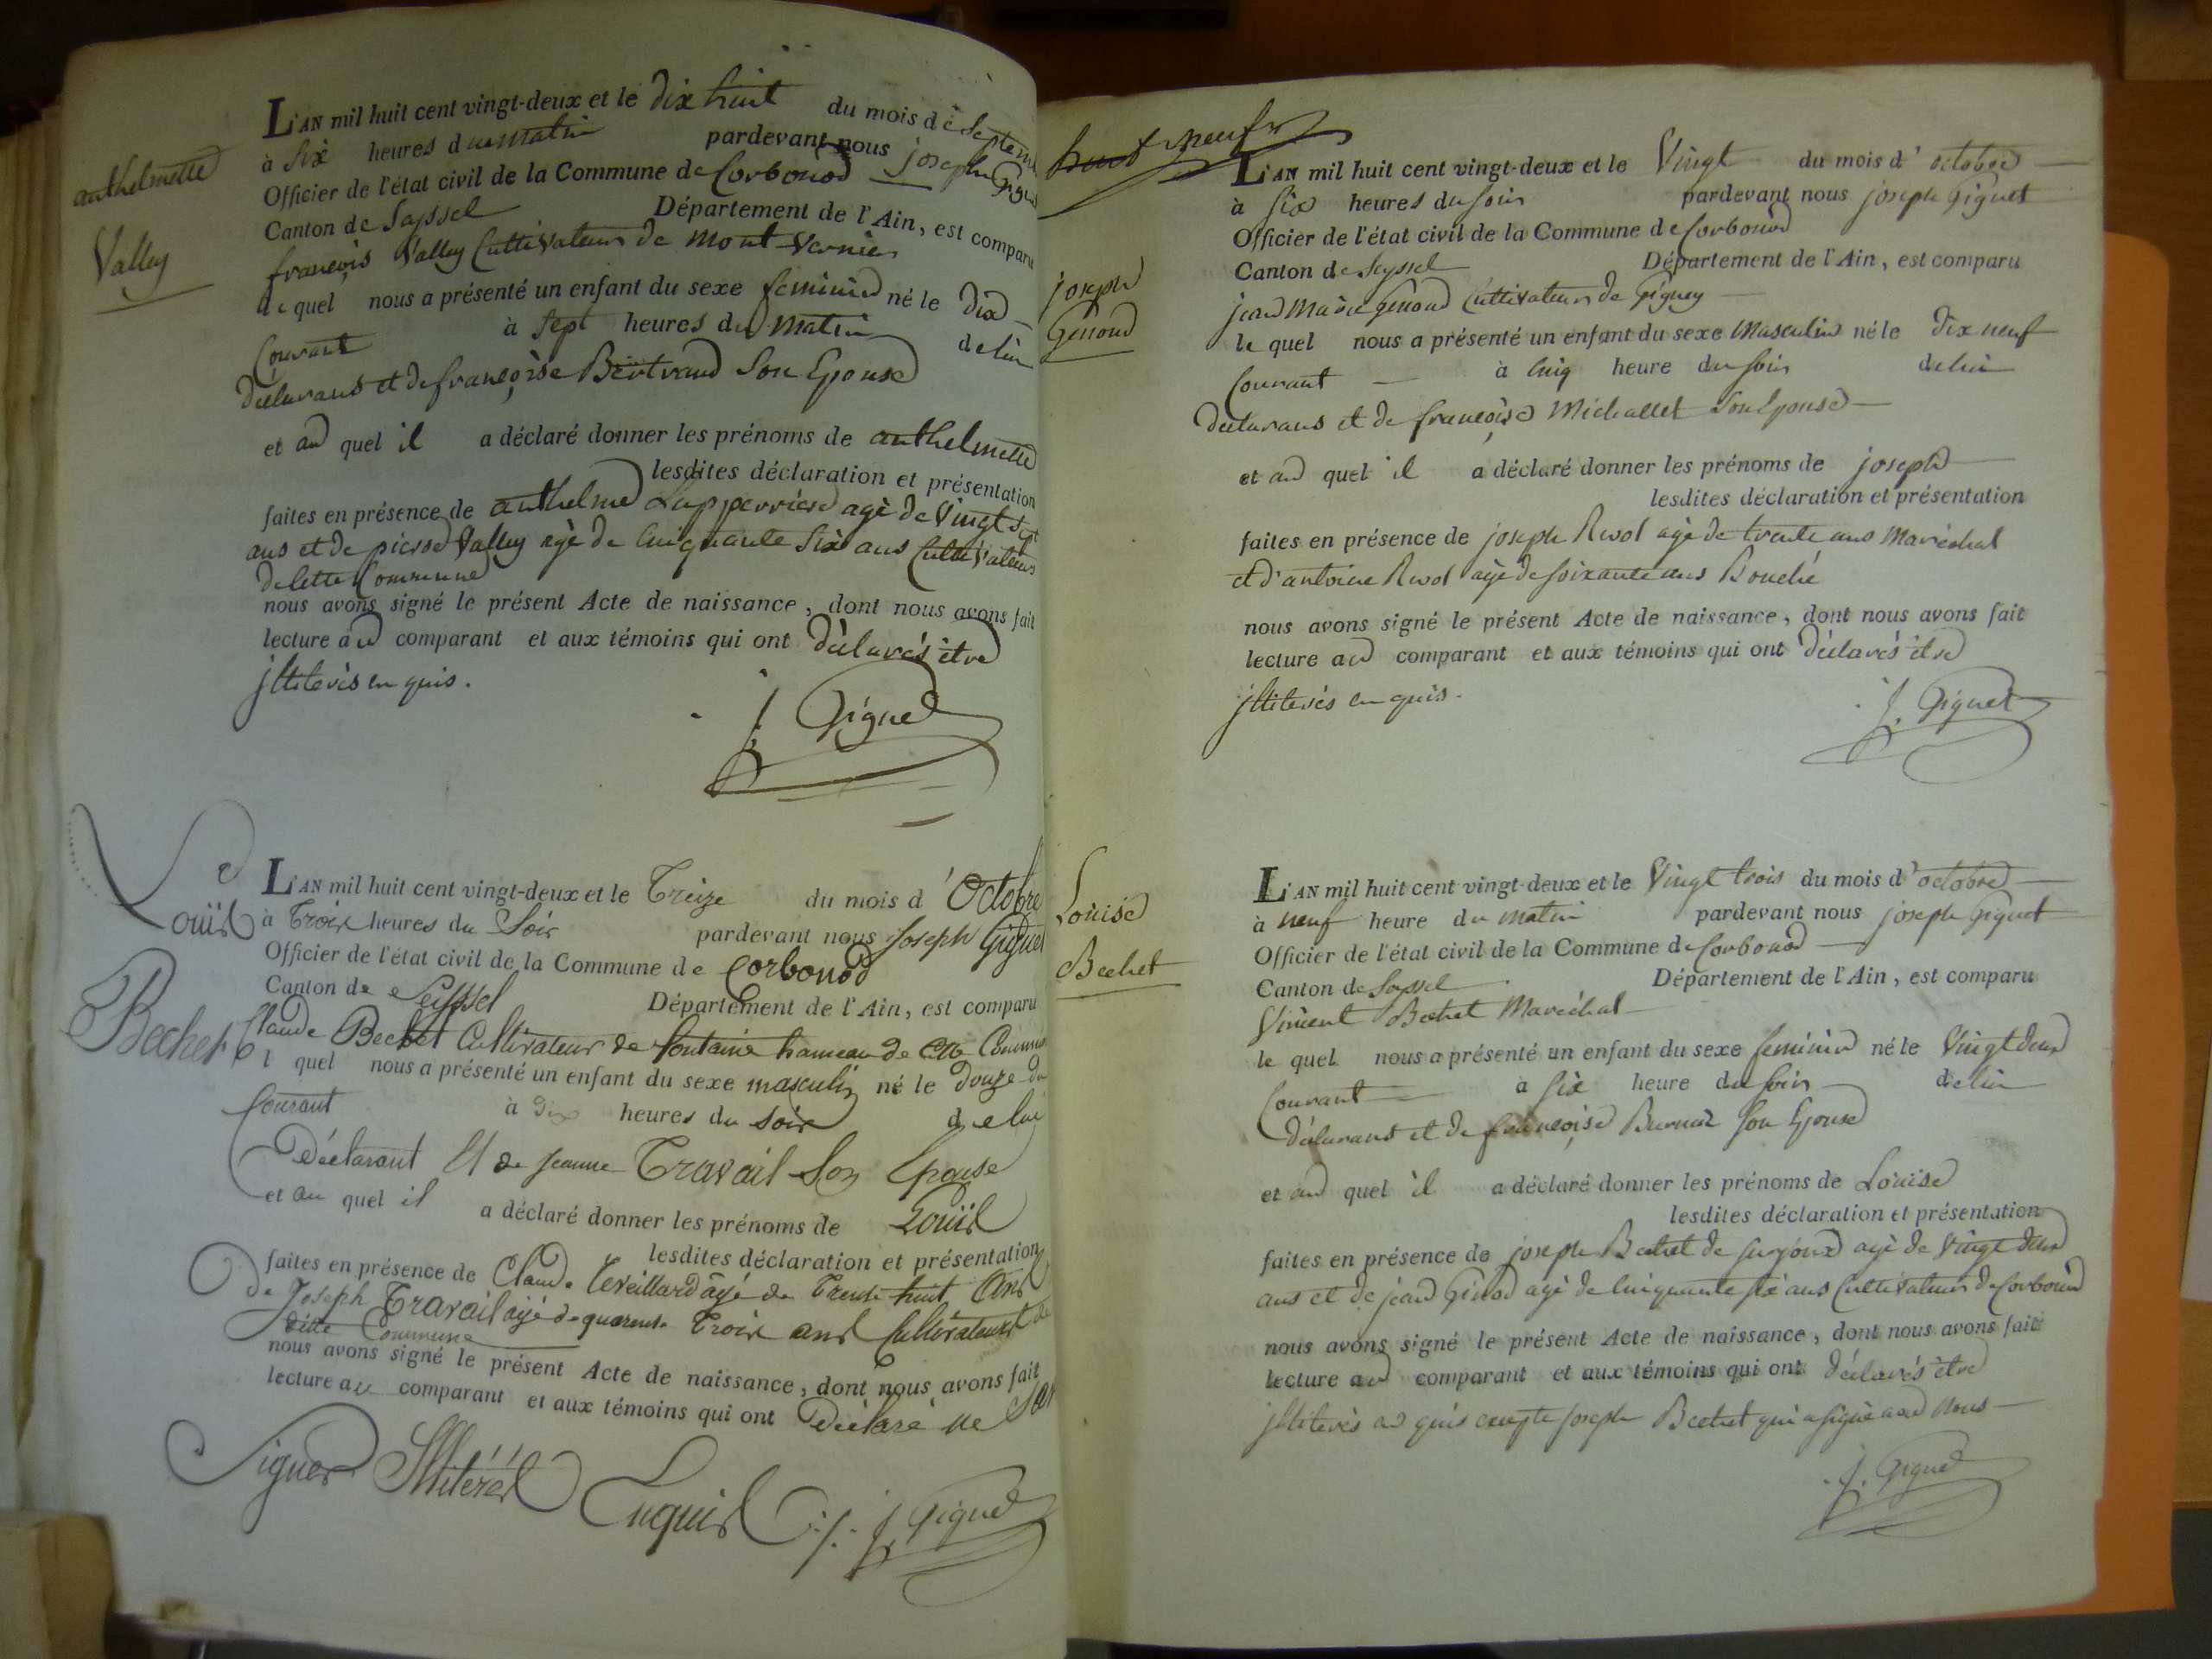 anthelmette
Valley
L'AN mil huit cent vingt-deux et le dix huit du mois de Septem
à Six heures du matin pardevant nous joseph Gigue
Officier de l'état civil de la Commune de Corbonod
Canton de Seyssel Département de l'Ain, est comparu
françois Valley Cultivateur de Mont Vernier
le quel nous a présenté un enfant du sexe feminin né le dix
Courant à Sept heures du Matin de lui
déclarans et de françoise Bertrand Son Epouse
et au quel il a déclaré donner les prénoms de anthelmette
lesdites déclaration et présentation
faites en présence de anthelme Lapperriere agé de Vingt
ans et de pierre Valley agé de Cinquante Six ans Cultivateurs
de Cette Commune
nous avons signé le présent Acte de naissance, dont nous avons fait
lecture au comparant et aux témoins qui ont déclarés être
jlliterés enquis.
J. Giguet
Loüis
Bechet
L'AN mil huit cent vingt-deux et le Treize du mois d'Octobre
à Trois heures du Soir pardevant nous Joseph Giguet
Officier de l'état civil de la Commune de Corbonod
Canton de Seyssel Département de l'Ain, est comparu
Claude Bechet Cultivateur de fontaine hameau de Cette Commun
l quel nous a présenté un enfant du sexe masculin né le douze du
Courant à Dix heures du Soir de lui
Déclarant Et de Jeanne Travail Son Epouse
et au quel il a déclaré donner les prénoms de Loüis
lesdites déclaration et présentation
faites en présence de Claude âgé de Trente huit Ans
de Joseph Travail âgé de quarente Trois ans Cultivateurs de
ditte Commune
nous avons signé le présent Acte de naissance, dont nous avons fait
lecture au comparant et aux témoins qui ont Déclaré ne
Signer Illitérés Enquis ./. J. Giguet
huit neuf
joseph
Genoud
L'AN mil huit cent vingt-deux et le Vingt du mois d'octobre
à Six heures du Soir pardevant nous joseph Giguet
Officier de l'état civil de la Commune de Corbonod
Canton de Seyssel Département de l'Ain, est comparu
jean Marie Genoud Cultivateur de Gigney
le quel nous a présenté un enfant du sexe Masculin né le dix neuf
Courant à Cinq heure du Soir de lui
déclarans et de françoise Michallet Son Epouse
et au quel il a déclaré donner les prénoms de joseph
lesdites déclaration et présentation
faites en présence de joseph Rivol agé de trente ans Maréchal
et d'antoine Rivol agé de Soixante ans Bouché
nous avons signé le présent Acte de naissance, dont nous avons fait
lecture au comparant et aux témoins qui ont déclarés être
jlliterés enquis.
J. Giguet
Loüise
Bechet
L'AN mil huit cent vingt-deux et le Vingt trois du mois d'octobre
à neuf heure du matin pardevant nous joseph Giguet
Officier de l'état civil de la Commune de Corbonod
Canton de Seyssel Département de l'Ain, est comparu
Vincent Bechet Maréchal
le quel nous a présenté un enfant du sexe feminin né le Vingt deux
Courant à Six heure du Soir de lui
déclarans et de françoise Son Epouse
et au quel il a déclaré donner les prénoms de Loüise
lesdites déclaration et présentation
faites en présence de joseph Bechet de Surjoux agé de Vingt deux
ans et de jean Ginod agé de Cinquante Six ans Cultivateur de Corbonod
nous avons signé le présent Acte de naissance, dont nous avons fait
lecture au comparant et aux témoins qui ont déclarés être
jlliterés enquis excepte joseph Bechet qui a signé avec Nous
J. Giguet